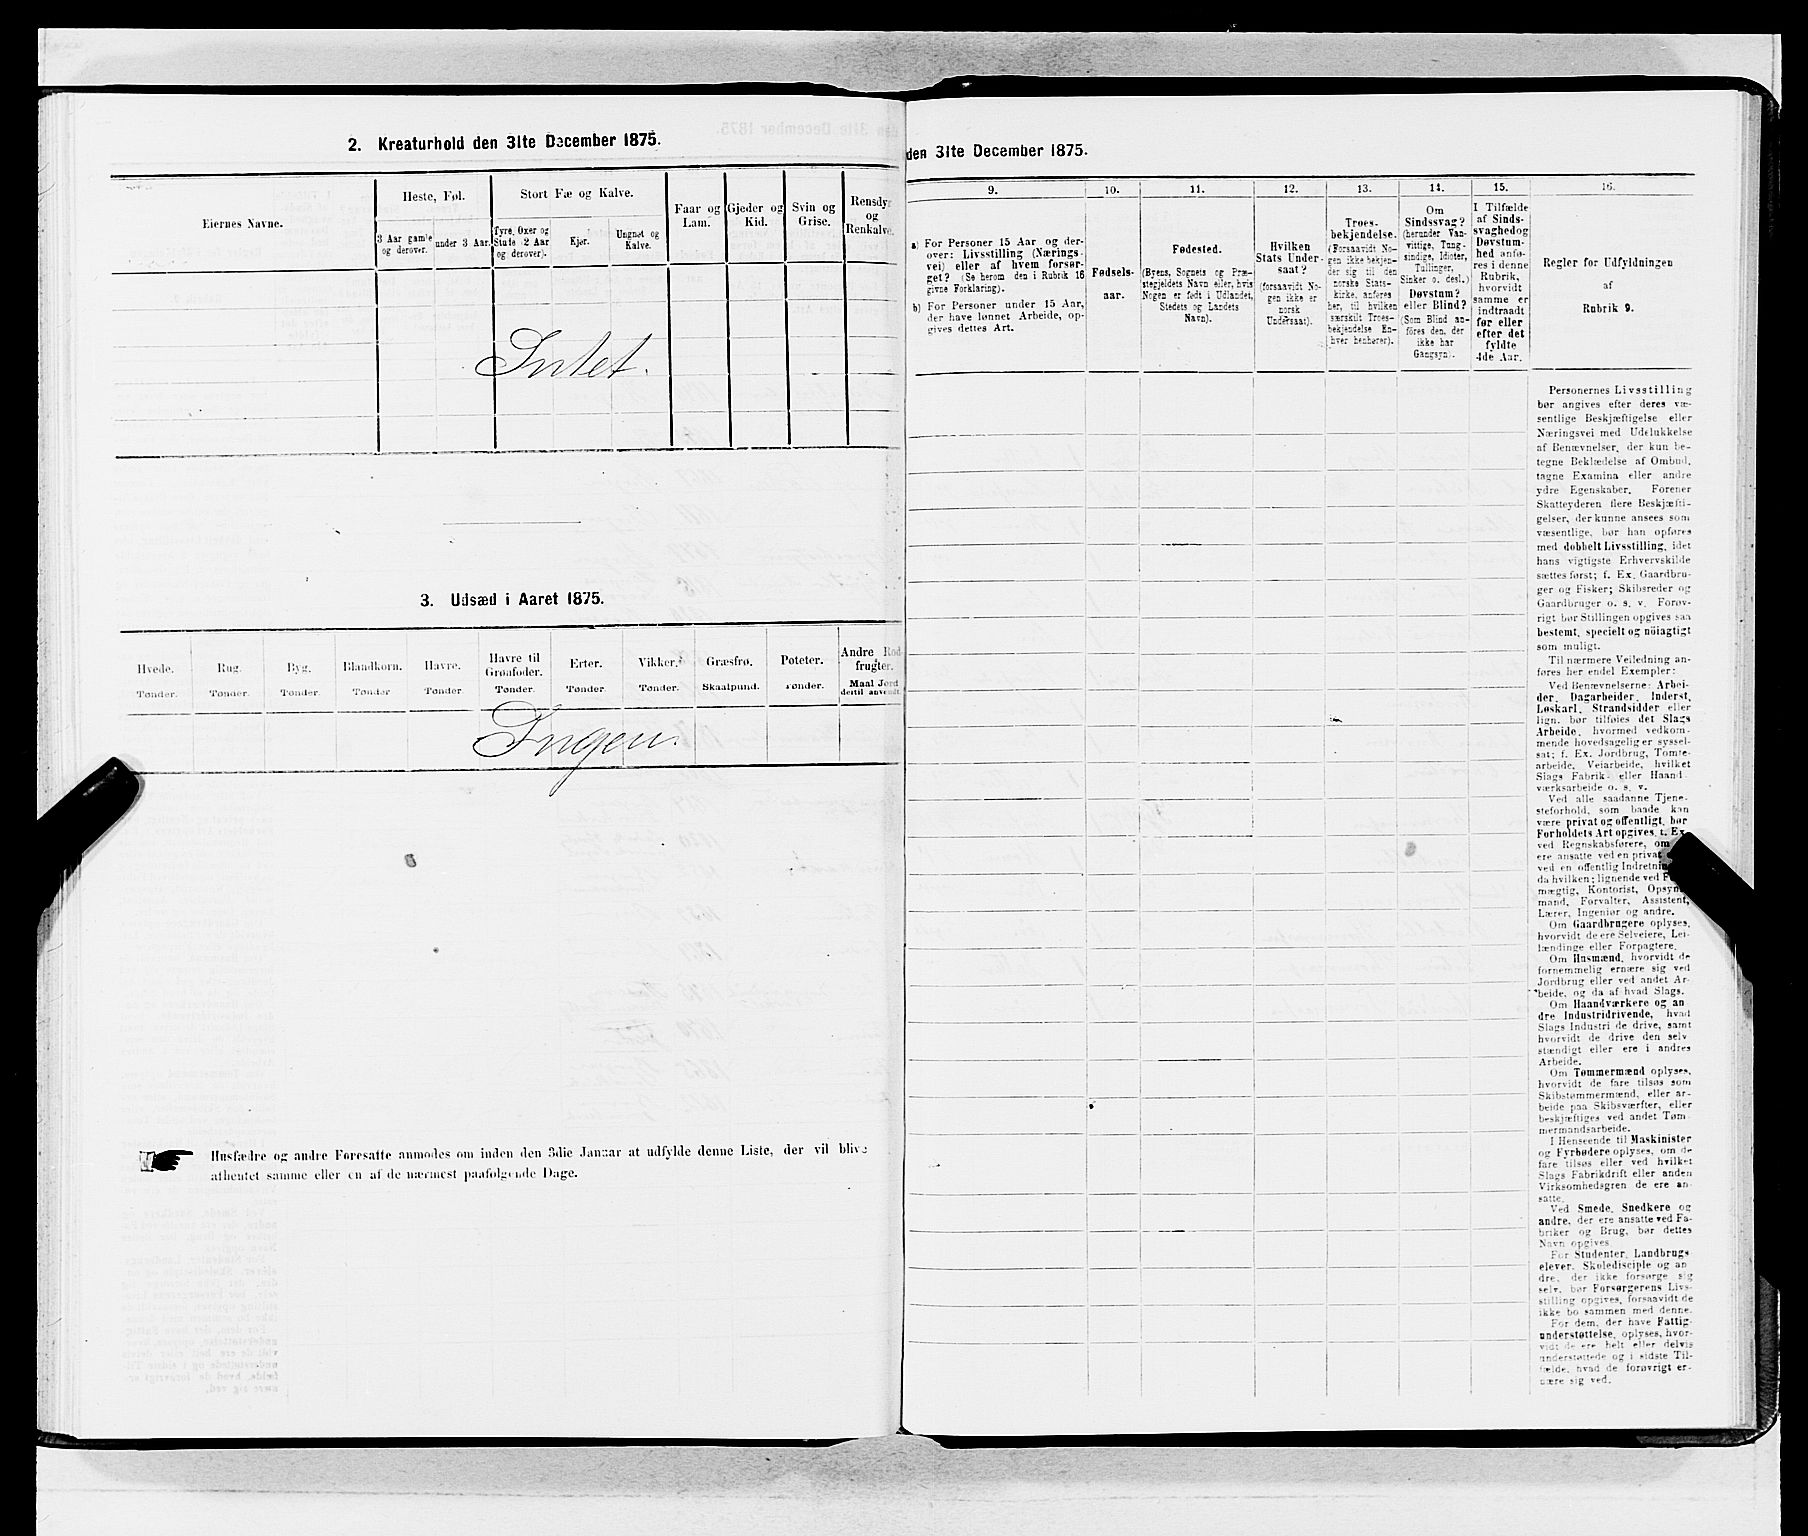 2. Kreaturhold den 31te December 1875.
Eiernes Navne.
Heste, Føl.
3 Aar gamle
og derover.
under 3 Aar.
Stort Fæ og Kalve.
Tyre, Oxer og
Stude (2 Aar
og derover).
Kjør.
Ungnøt og
Kalve.
Faar og
Lam.
Gjeder og
Kid.
Svin og
Grise.
Rensdyr
og
Renkalve.
Intet.
3. Udsæd i Aaret 1875.
Hvede.
Tønder.
Rug.
Tønder.
Byg.
Tønder.
Blandkorn.
Tønder
Havre.
Tønder.
Havre til
Grønfoder.
Tønder.
Erter.
Tønder.
Vikker.
Tønder.
Græsfrø.
Skaalpund.
Poteter.
Tønder.
Andre Rod-
frugter.
Maal Jord
dertil anvendt.
Ingen.
Husfædre og andre Foresatte anmodes om inden den 3die Januar at udfylde denne Liste, der vil blive
afhentet samme eller en af de nærmest paafølgende Dage.
den 31te December 1875.
9.
a) For Personer 15 Aar og der-
over: Livsstilling (Nærings-
vei) eller af hvem forsør-
get? (Se herom den i Rubrik 16
givne Forklaring).
b) For Personer under 15 Aar,
der have lønnet Arbeide, op-
gives dettes Art.
10.
Fødsels-
aar.
11.
Fødested.
(Byens, Sognets og Præ-
stegjeldets Navn eller, hvis
Nogen er født i Udlandet,
Stedets og Landets
Navn).
12.
Hvilken
Stats Under-
saat?
(forsaavidt No-
gen ikke er
norsk
Undersaat).
13.
Troes-
bekjendelse.
(Forsaavidt No-
gen ikke bekjen-
der sig til den
norske Stats-
kirke, anføres
her, til hvilken
særskilt Troes-
bekjendelse En-
hver henhører).
14.
Om
Sindssvag?
(herunder Van-
vittige, Tung-
sindige, Idioter,
Tullinger,
Sinker o. desl.)
Døvstum?
eller Blind?
(Som Blind an-
föres den, der
ikke har
Gangsyn).
15.
I Tilfælde
af Sinds-
svaghedog
Døvstum-
hed anfø-
res i denne
Rubrik,
hvorvidt
samme er
indtraadt
før eller
efter det
fyldte
4de Aar.
16.
Regler for Udfyldningen
af
Rubrik 9.
Personernes Livsstilling
bør angives efter deres væ-
sentlige Beskjæftigelse eller
Næringsvei med Udelukkelse
af Benævnelser, der kun be-
tegne Beklædelse af Ombud,
tagne Examina eller andre
ydre Egenskaber. Forener
Skatteyderen flere Beskjæfti-
gelser, der kunne ansees som
væsentlige, bør han opføres
med dobbelt Livsstilling, idet
hans vigtigste Erhvervskilde
sættes først; f. Ex. Gaardbru-
ger og Fisker; Skibsreder og
Gaardbruger o. s. v. Forøv-
rigt bør Stillingen opgives saa
bestemt, specielt og nöiagtigt
som muligt.
Til nærmere Veiledning an-
føres her endel Exempler:
Ved Benævnelserne: Arbei-
der, Dagarbeider, Inderst,
Løskarl, Strandsidder eller
lign. bør tilføies det Slags
Arbeide, hvormed vedkom-
mende hovedsagelig er syssel-
sat; f. Ex. Jordbrug, Tomte-
arbeide, Veiarbeide, hvilket
Slags Fabrik- eller Haand-
værksarbeide o. s. v.
Ved alle saadanne Tjene-
steforhold, som baade kan
være privat og offentligt, bør
Forholdets Art opgives, t. Ex.
ved Regnskabsførere, om
ere ansatte ved en privat
ved en offentlig Indretning
da hvilken; lignende ved
mægtig, Kontorist, Opsyns-
mand, Forvalter, Assistent,
Lærer, Ingeniør og andre.
Om Gaardbrugere oplyses,
hvorvidt de ere Selveiere, Lei-
lændinge eller Forpagtere.
Om Husmænd, hvorvidt de
fornemmelig ernære sig ved
Jordbrug eller ved andet Ar-
beide, og da af hvad Slags.
Om Haandværkere og an-
dre Industridrivende, hvad
Slags Industri de drive, samt
hvorvidt de drive den selv-
stændigt eller ere i andres
Arbeide.
Om Tømmermænd oplyses,
hvorvidt de fare tilsøs som
Skibstømmermænd, eller ar-
beide paa Skibsværfter, eller
beskjæftiges ved andet Tøm-
mermandsarbeide.
I Henseende til Maskinister
og Fyrbødere oplyses, om de
fare tilsøs eller ved hvilket
Slags Fabrikdrift eller anden
Virksomhedsgren de ere an-
satte.
Ved Smede, Snedkere og
andre, der ere ansatte ved Fa-
briker og Brug, bør dettes
Navn opgives.
For Studenter, Landbrugs-
elever, Skoledisciple og an-
dre, der ikke forsørge sig
selv, bør Forsørgerens Livs-
stilling opgives, forsaavidt de
ikke bo sammen med denne.
For dem, der have Fattig-
understøttelse, oplyses, hvor-
vidt de ere helt eller delvis
understøttede og i sidste Til-
fælde, hvad de forøvrigt er-
nære sig ved.